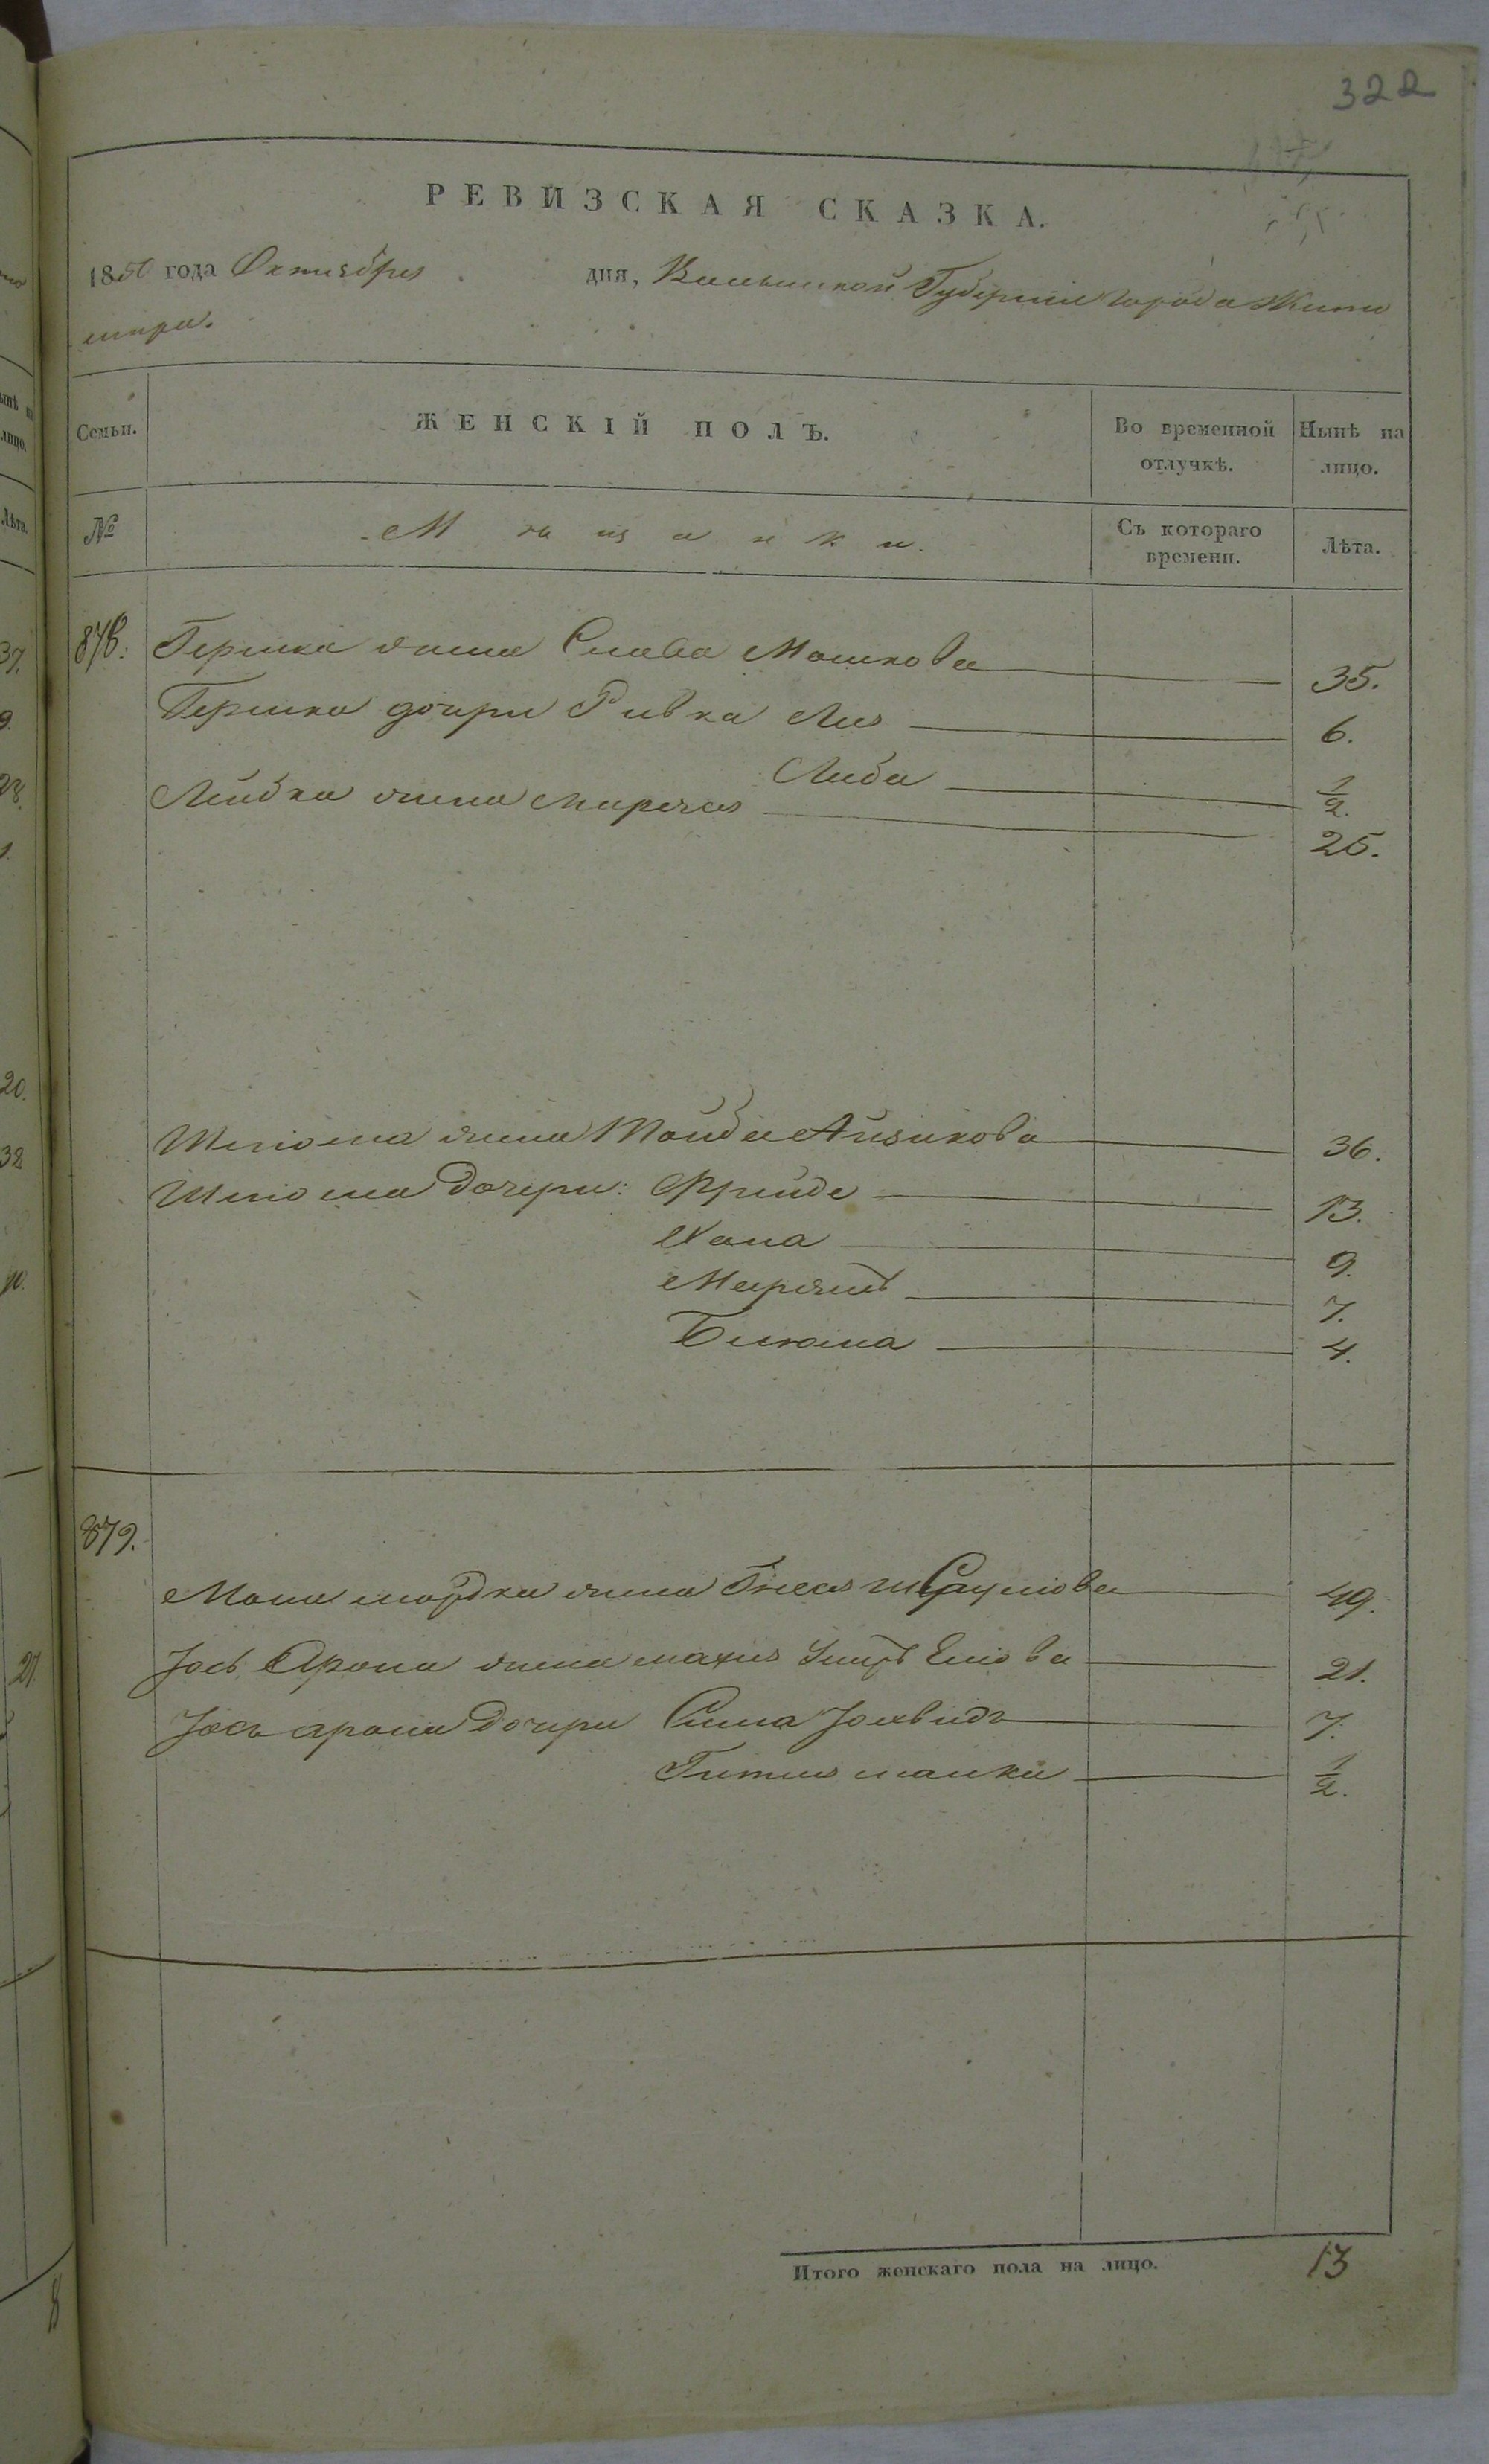 322
РЕВИЗСКАЯ СКАЗКА.
1850 года Октября дня, Волынской Губернии города Жито
мира.
Семьи. ЖЕНСКІЙ ПОЛЪ. Во временной отлучкѣ. Нынѣ на лицо.
№ Мѣщанки. Съ котораго времени. Лѣта.
878. Гершка жена Слава Мошкова 35.
Гершка дочери Ривка Лея 6.
Либа 1/2.
Лейбка жена Мирля 25.
Шлиома жена Тойба Айзикова 36.
Шлиома Дочери: Фрейде 13.
Хана 9.
Мирямъ 7.
Блюма 4.
879.
Мошка жена 49.
Јось Арона жена Елиова 21.
Јось арона Дочери Сима Јохвидъ 7.
Гитля 1/2.
Итого женскаго пола на лицо. 13